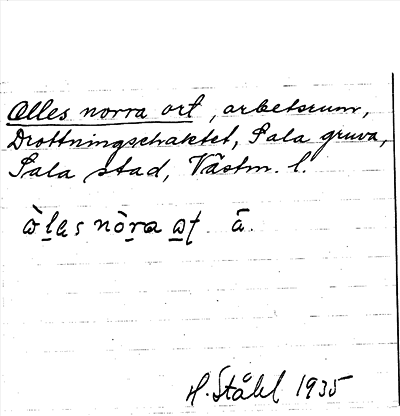 Olles norra ort, arbetsrum,
Drottningschaktet, Sala gruva,
Sala stad, Västm. l.
ò̱ḻas nòṟa o̱ṯ. ā.
H. Ståhl 1935